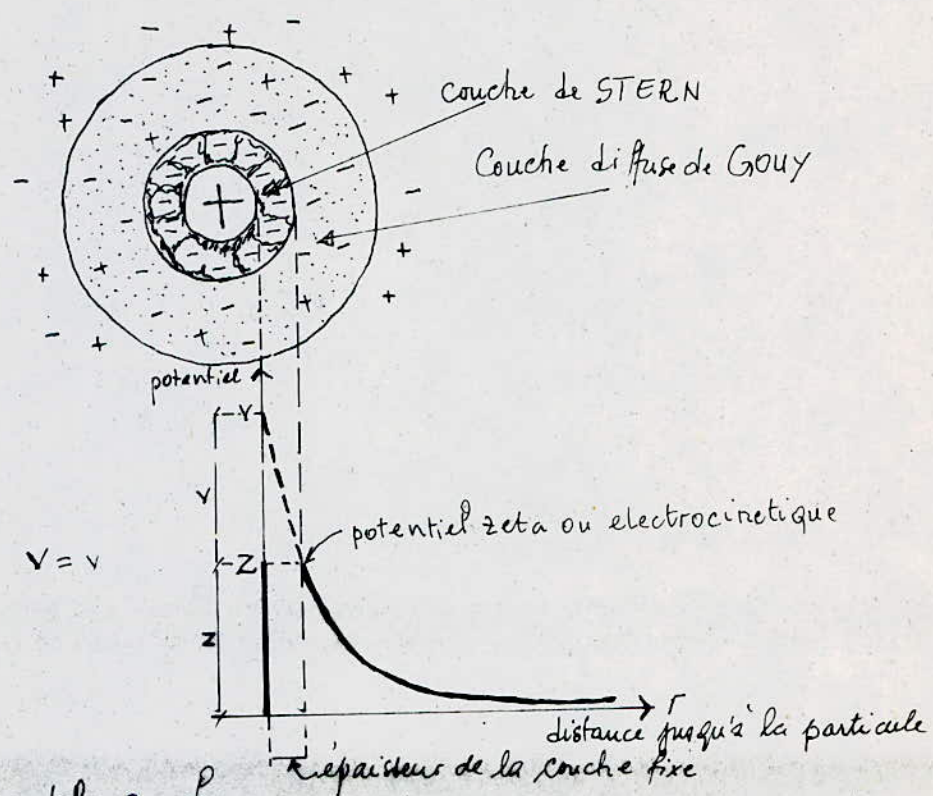 couche de STERN
Couche diffuse de GOUY
potentiel
V
v
potentiel zeta ou electrocinetique
V = v
Z
z
r
distance jusqu'à la particule
épaisseur de la couche fixe